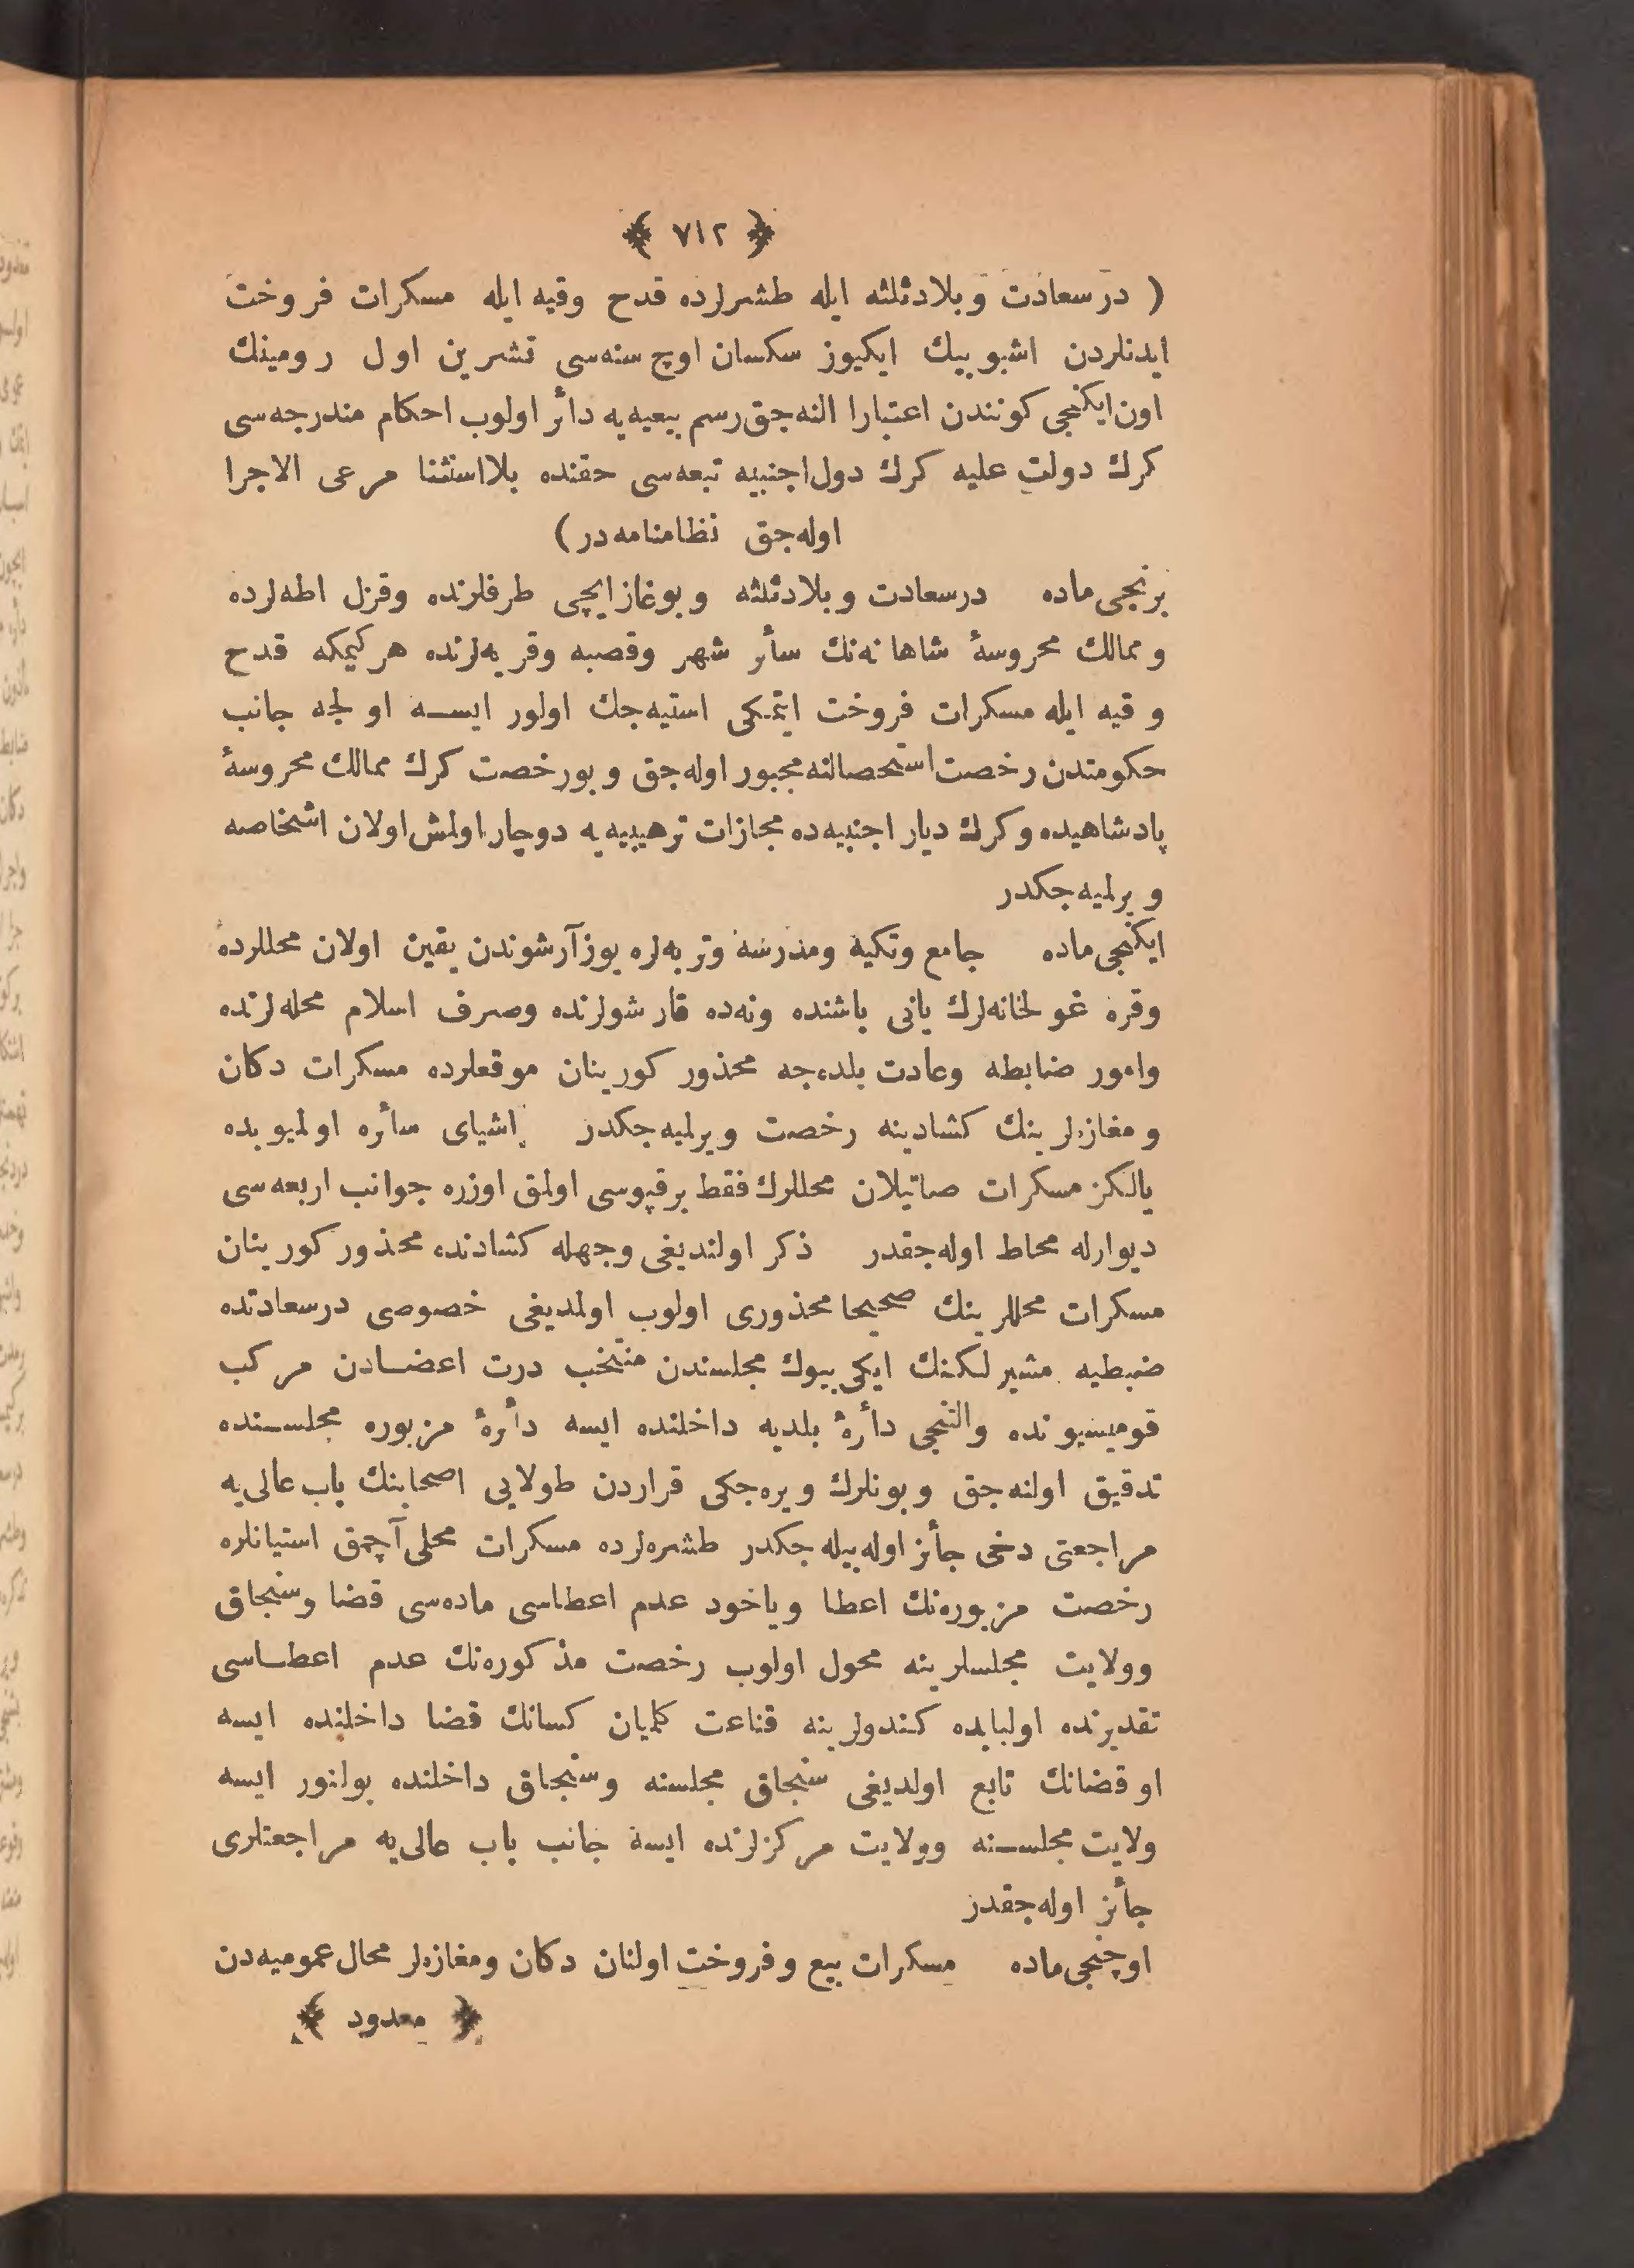 ﴿ ٧١٢ ﴾
( درسعادت و بلاد ثلثه ایله طشرلرده قدح وقیه ایله مسكرات فروخت
ایدنلردن اشبو بیك ایكیوز سكسان اوچ سنه‌سی تشرین اول رومینك
اون ایكنجی كونندن اعتبارا النه‌جق رسم بیعیه‌یه دائر اولوب احكام مندرجه‌سی
كرك دولت علیه كرك دول اجنبیه تبعه‌سی حقنده بلااستثنا مرعی الاجرا
اوله‌جق نظامنامه‌در )
برنجی ماده درسعادت و بلاد ثلثه و بوغازایچی طرفلرنده وقزل اطه‌لرده
و ممالك محروسهٔ شاهانه‌نك سائر شهر وقصبه وقریه‌لرنده هركیمكه قدح
و قیه ایله مسكرات فروخت ایتمكی استیه‌جك اولور ایسه اولجه جانب
حكومتدن رخصت استحصالنه مجبور اوله‌جق و بورخصت كرك ممالك محروسهٔ
پادشاهیده و كرك دیار اجنبیه‌ده مجازات ترهیبیه‌یه دوچار اولمش اولان اشخاصه
ویرلمیه‌جكدر
ایكنجی ماده جامع وتكیه ومدرسه وتربه‌لره یوز آرشوندن یقین اولان محللرده
وقره غولخانه‌لرك یانی باشنده ونه‌ده قارشولرنده وصرف اسلام محله‌لرنده
وامور ضابطه وعادت بلده‌جه محذور كورینان موقعلرده مسكرات دكان
و مغازه‌لرینك كشادینه رخصت ویرلمیه‌جكدر اشیای سائره اولمیوبده
یالكز مسكرات صاتیلان محللرك فقط برقپوسی اولمق اوزره جوانب اربعه‌سی
دیوارله محاط اوله‌جقدر ذكر اولندیغی وجهله كشادنده محذور كورینان
مسكرات محللرینك صحیحا محذوری اولوب اولمدیغی خصوصی درسعادتده
ضبطیه مشیرلكنك ایكی بیوك مجلسندن منتخب درت اعضادن مركب
قومیسیونده والتنجی دائرهٔ بلدیه داخلنده ایسه دائرهٔ مزبوره مجلسنده
تدقیق اولنه‌جق و بونلرك ویره‌جكی قراردن طولایی اصحابنك باب عالی‌یه
مراجعتی دخی جائز اوله‌بیله‌جكدر طشره‌لرده مسكرات محلی آچمق استیانلره
رخصت مزبوره‌نك اعطا ویاخود عدم اعطاسی ماده‌سی قضا وسنجاق
وولایت مجلسلرینه محول اولوب رخصت مذكوره‌نك عدم اعطاسی
تقدیرنده اولبابده كندولرینه قناعت كلمیان كسانك قضا داخلنده ایسه
او قضانك تابع اولدیغی سنجاق مجلسنه وسنجاق داخلنده بولنور ایسه
ولایت مجلسنه وولایت مركزلرنده ایسه جانب باب عالی‌یه مراجعتلری
جائز اوله‌جقدر
اوچنجی ماده مسكرات بیع وفروخت اولنان دكان ومغازه‌لر محال عمومیه‌دن
﴿ معدود ﴾